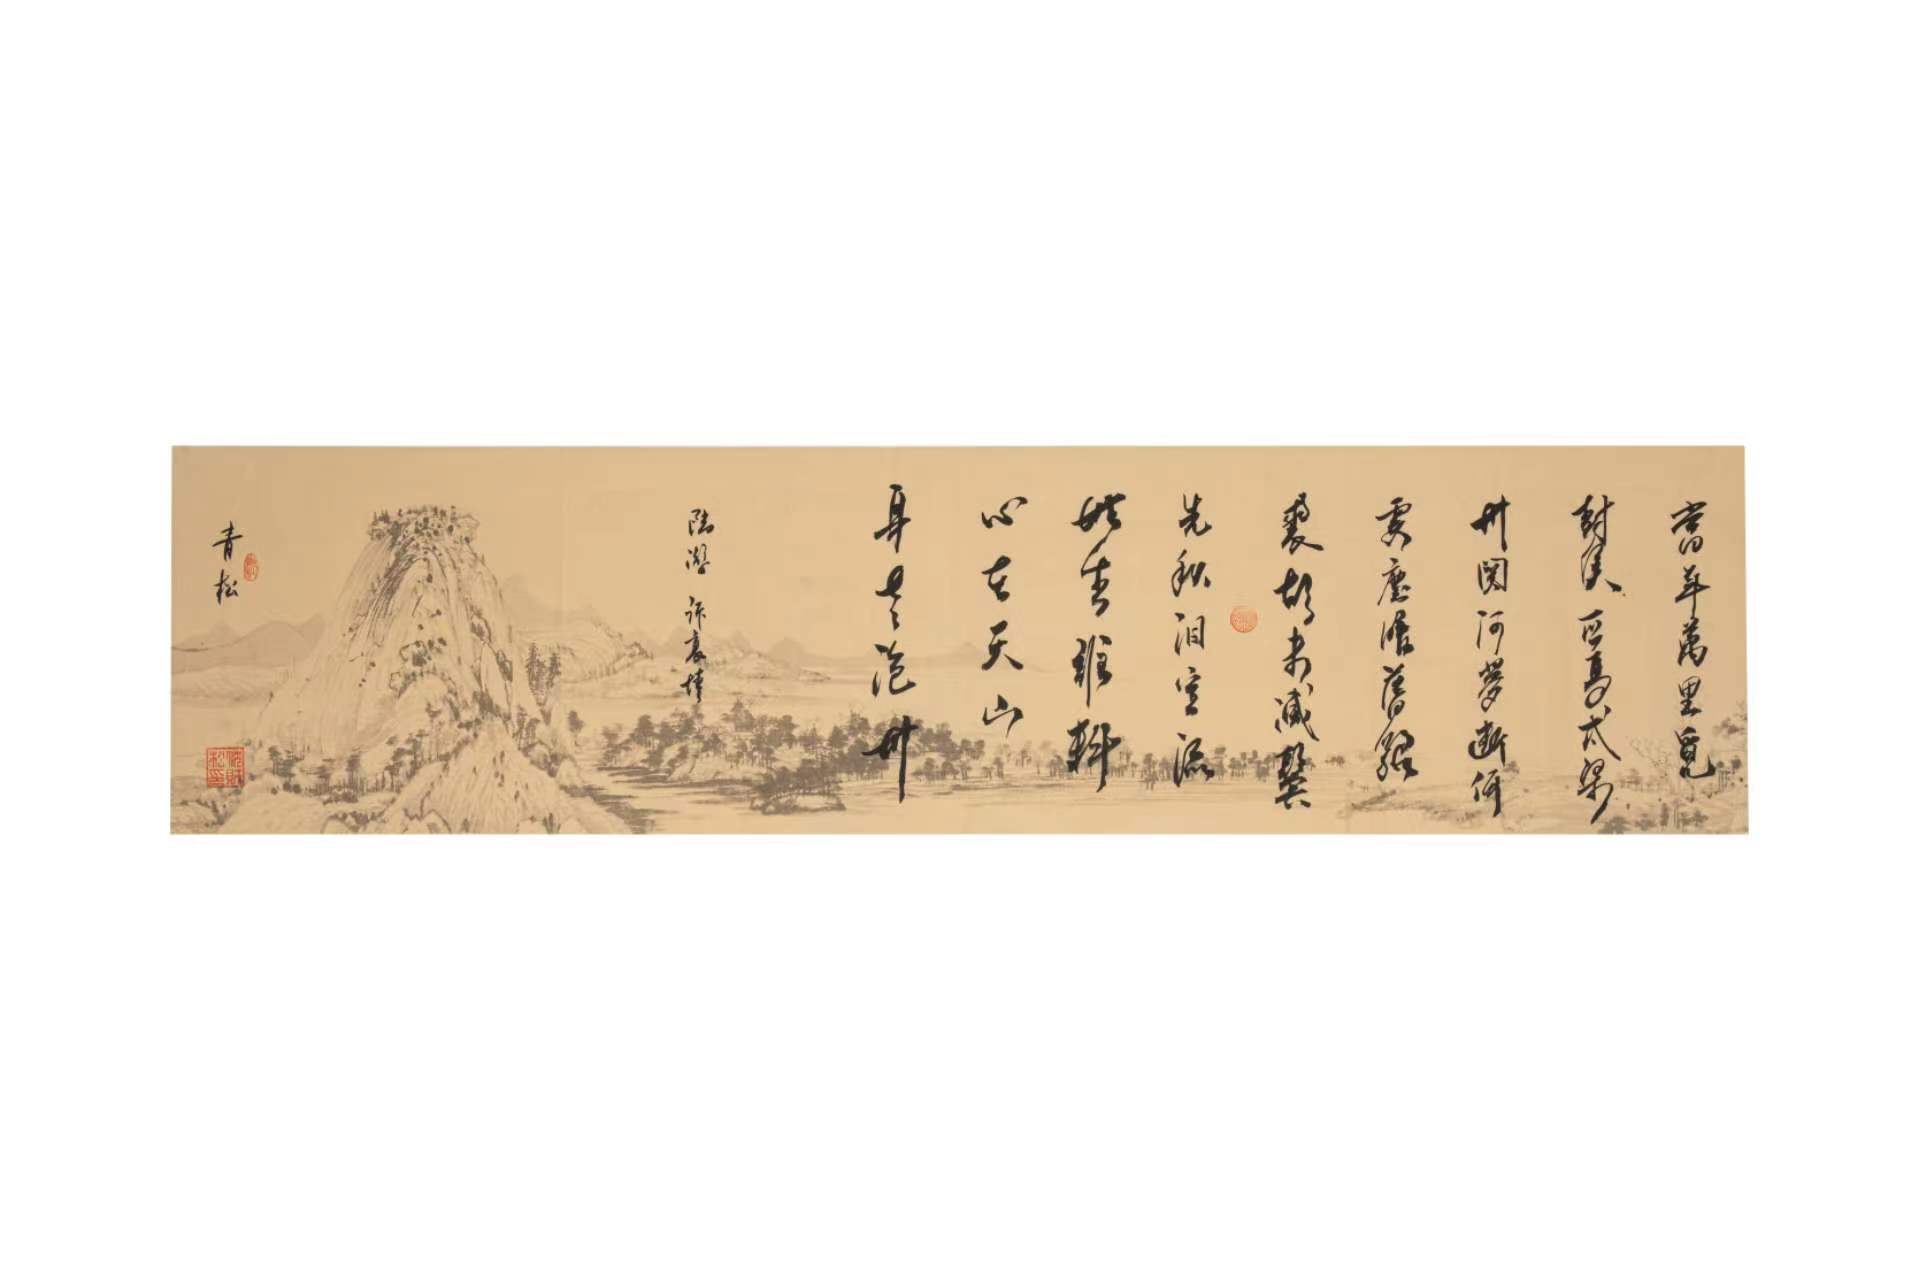 當年萬里覓
封侯匹馬戍梁
州関河夢断何
處塵暗舊貂
裘胡未滅鬢
先秋泪空流
此生誰料
心在天山
身老滄州
陸游 訴衷情
青松